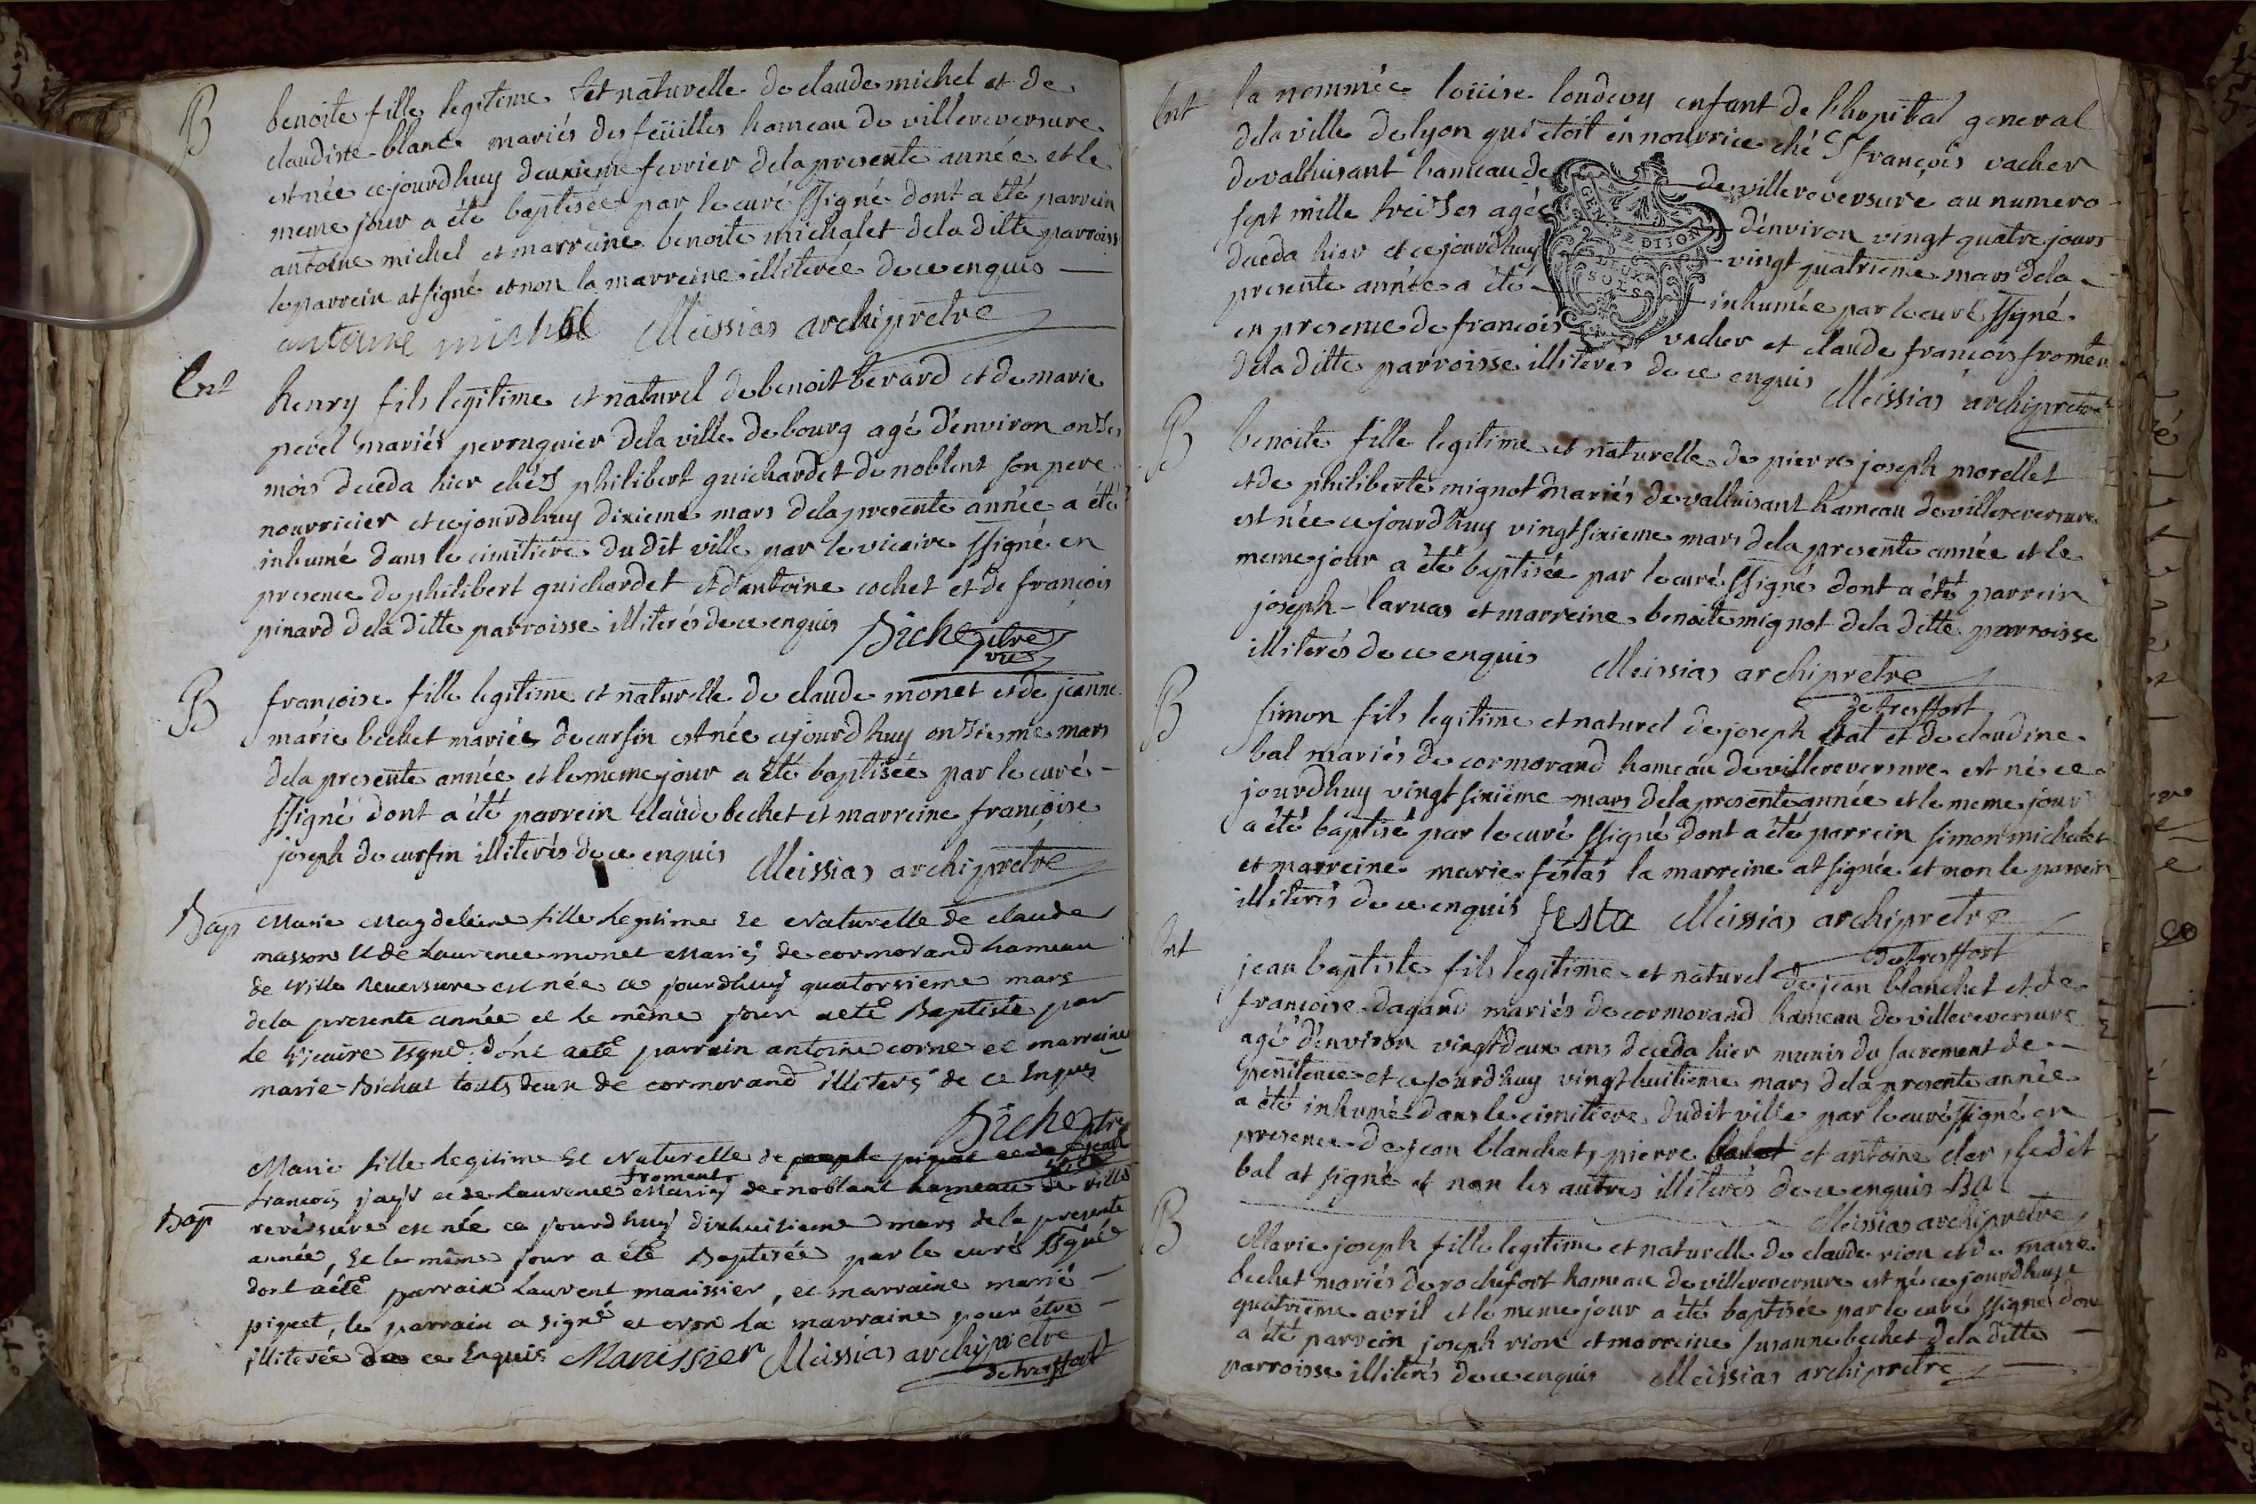 B
benoite fille legitime et naturelle de claude michel et de
claudine blanc mariés des feüilles hameau de villereversure
est née cejourdhuy deuxieme fevrier dela presente année et le
meme jour a été baptisée par le curé ssigné dont a été parrein
antoine michel et marreine benoite michalet dela ditte parroisse
le parrein at signé et non la marreine illiterée de ce enquis
antoine michel Meissias archiprêtre
Ent
henry fils legitime et naturel de benoit berard et de marie
perruquier dela ville de bourg agé denviron onses
mois deceda hier chés philibert guichardet de noblens son pere
nourricier et cejourdhuy dixieme mars dela presente année a été
inhumé dans le cimitiere dudit ville par le vicaire ssigné en
presence de philibert guichardet et dantoine cochet et de françois
pinard dela ditte parroisse illiterés de ce enquis
ptre
vic
B
françoise fille legitime et naturelle de claude monet et de jeanne
marie bechet mariés de cursin est née cejourdhuy onsieme mars
dela presente année et le meme jour a été baptisée par le curé
ssigné dont a été parrein claude bechet et marreine françoise
joseph de cursin illiterés de ce enquis Meissias archiprêtre
Bap
Marie Magdeleine fille legitime Et Naturelle de claude
masson et de Laurence monet Mariés de cormorand hameau
de ville Reversure est née ce jourdhuy quatorsieme mars
dela presente année et le même jour a eté Baptisée par
le vicaire ssigné dont a eté parrain antoine corne et marraine
marie Bichat touts deux de cormorand illiterés de ce Enquis
ptre
Marie fille Legitime Et Naturelle de
froment
françois et de Laurence Mariés de noblant hameau de ville
Bap
reversure est née ce jourdhuy dixhuitieme mars de la presente
année, Et le même jour a été Baptisée par le curé ssigné
dont a été parrain Laurent manissier, et marraine marie
piquet, le parrain a signé et non la marraine pour être
illiterée de ce Enquis Manissier Meissias archiprêtre
de tresffort
Ent
la nommée loüise londevy enfant de lhopital general
dela ville de lyon qui etoit en nourrice ché S françois vacher
de valluisant hameau de villereversure au numero
sept mille treises agée denviron vingt quatre jours
deceda hier et cejourdhuy vingt quatrieme mars dela
presente année a été inhumée par le curé ssigné
en presence de françois vacher et claude françois froment
dela ditte parroisse illiterés de ce enquis Meissias archiprêtre
GEN DE DIJON
DEUX
SOLS
B
benoite fille legitime et naturelle de pierre joseph morellet
et de philiberte mignot mariés de valluisant hameau de villereversure
est née cejourdhuy vingtsixieme mars dela presente année et le
meme jour a été baptisée par le curé ssigné dont a été parrein
joseph laruas et marreine benoite mignot dela ditte parroisse
illiterés de ce enquis Meissias archiprêtre
de tresffort
B
simon fils legitime et naturel de joseph bal et de claudine
bal mariés de cormorand hameau de villereversure est né ce
jourdhuy vingt sixiéme mars dela presente année et le meme jour
a été baptisé par le curé ssigné dont a été parrein simon michalet
et marreine marie festas la marreine at signée et non le parrein
illiterés de ce enquis festa Meissias archiprêtre
de tresffort
Ent
jean baptiste fils legitime et naturel de jean blanchet et de
françoise dagand mariés de cormorand hameau de villereversure
agé denviron vingtdeux ans deceda hier munis du sacrement de
penitence et cejourdhuy vingthuitieme mars dela presente année
a été inhumé dans le cimitiere dudit ville par le curé ssigné en
presence de jean blanchet, pierre et antoine cler, ledit
bal at signé et non les autres illiterés de ce enquis Bal
Meissias archiprêtre
B
Marie joseph fille legitime et naturelle de claude rion et de marie
bechet mariés de rochefort hameau de villereversure est née cejourdhuy
quatrieme avril et le meme jour a été baptisée par le curé ssigné dont
a été parrein joseph rion et marreine susanne bechet dela ditte
parroisse illiterés de ce enquis Meissias archiprêtre